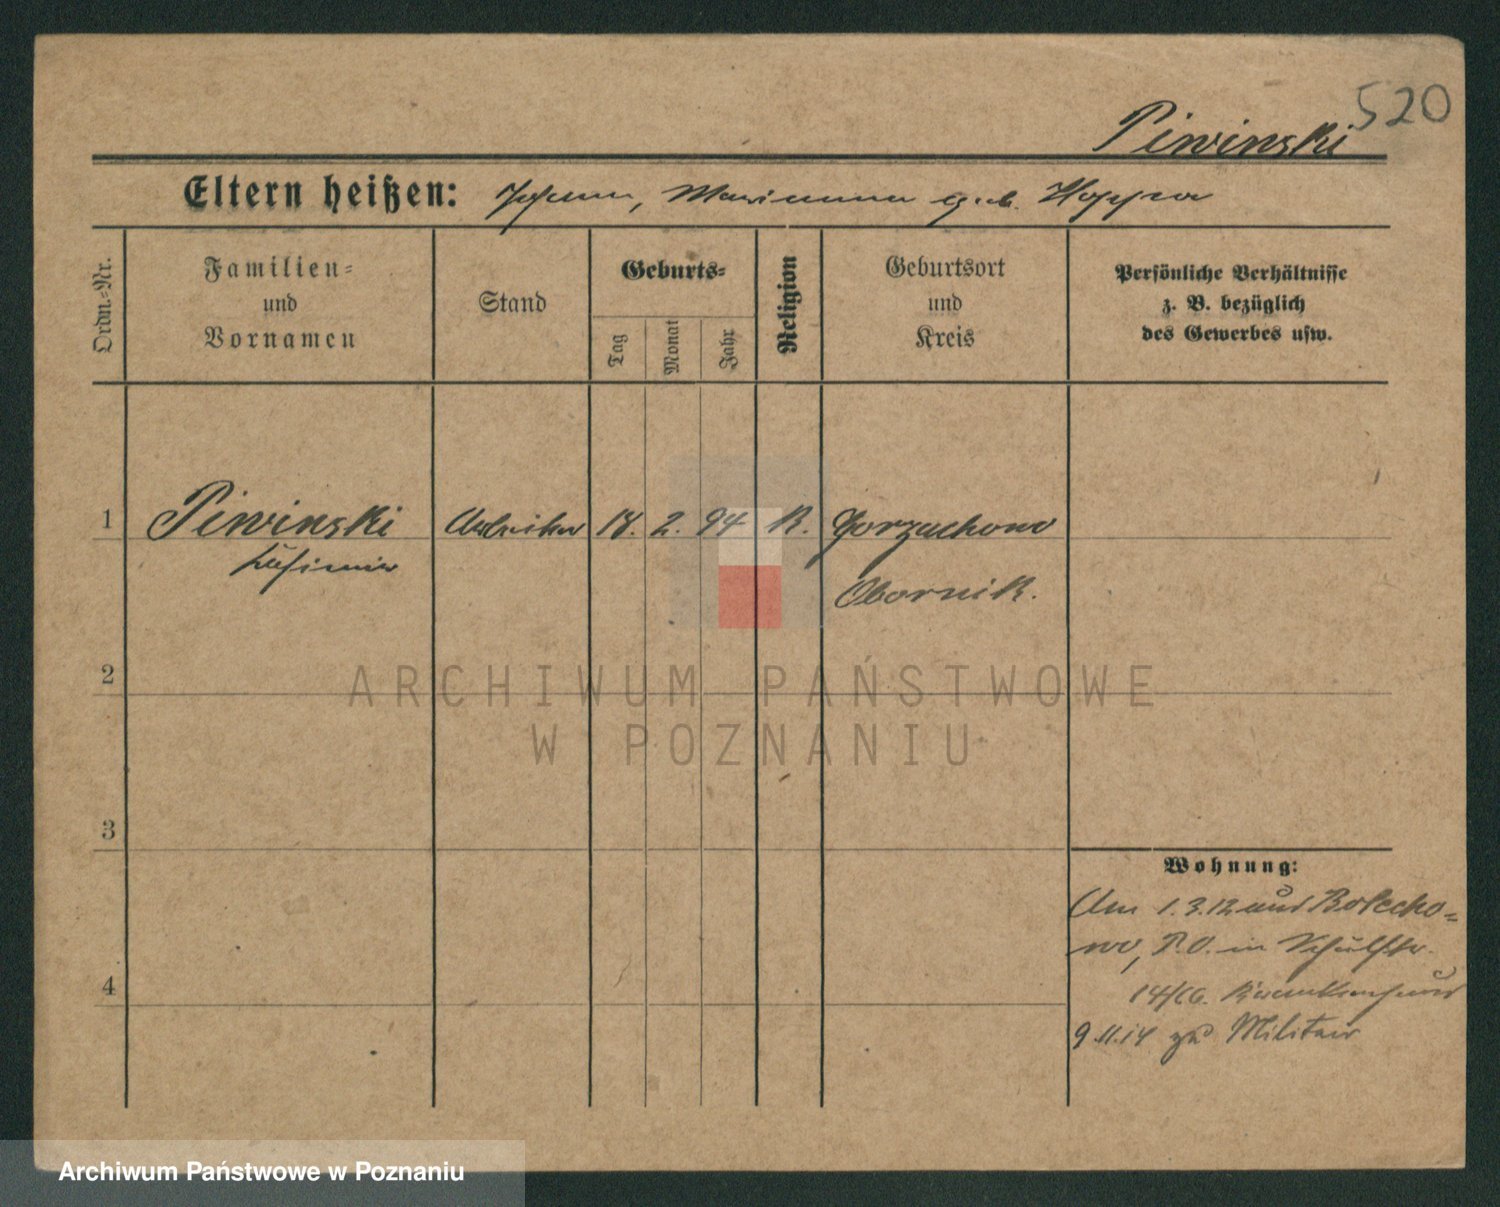 520
Piwinski
Eltern heißen: Johann, Marianna geb. Koppra
Ordn.-Nr.
Familien- und Vornamen
Stand
Geburts-
Tag
Monat
Jahr
Religion
Geburtsort und Kreis
Persönliche Verhältnisse
z. B. bezüglich
des Gewerbes usw.
1 Piwinski Arbeiter 18. 2. 94 K. Gorzuchowo
Kasimir
Obornik.
2
3
4
Wohnung:
Am 1.3.12 aus Bolecho=
wo, P.O. in Schulstr.
14/16. Krankenhaus
9.11.14 zu Militair
ARCHIWUM PAŃSTWOWE
W POZNANIU
Archiwum Państwowe w Poznaniu